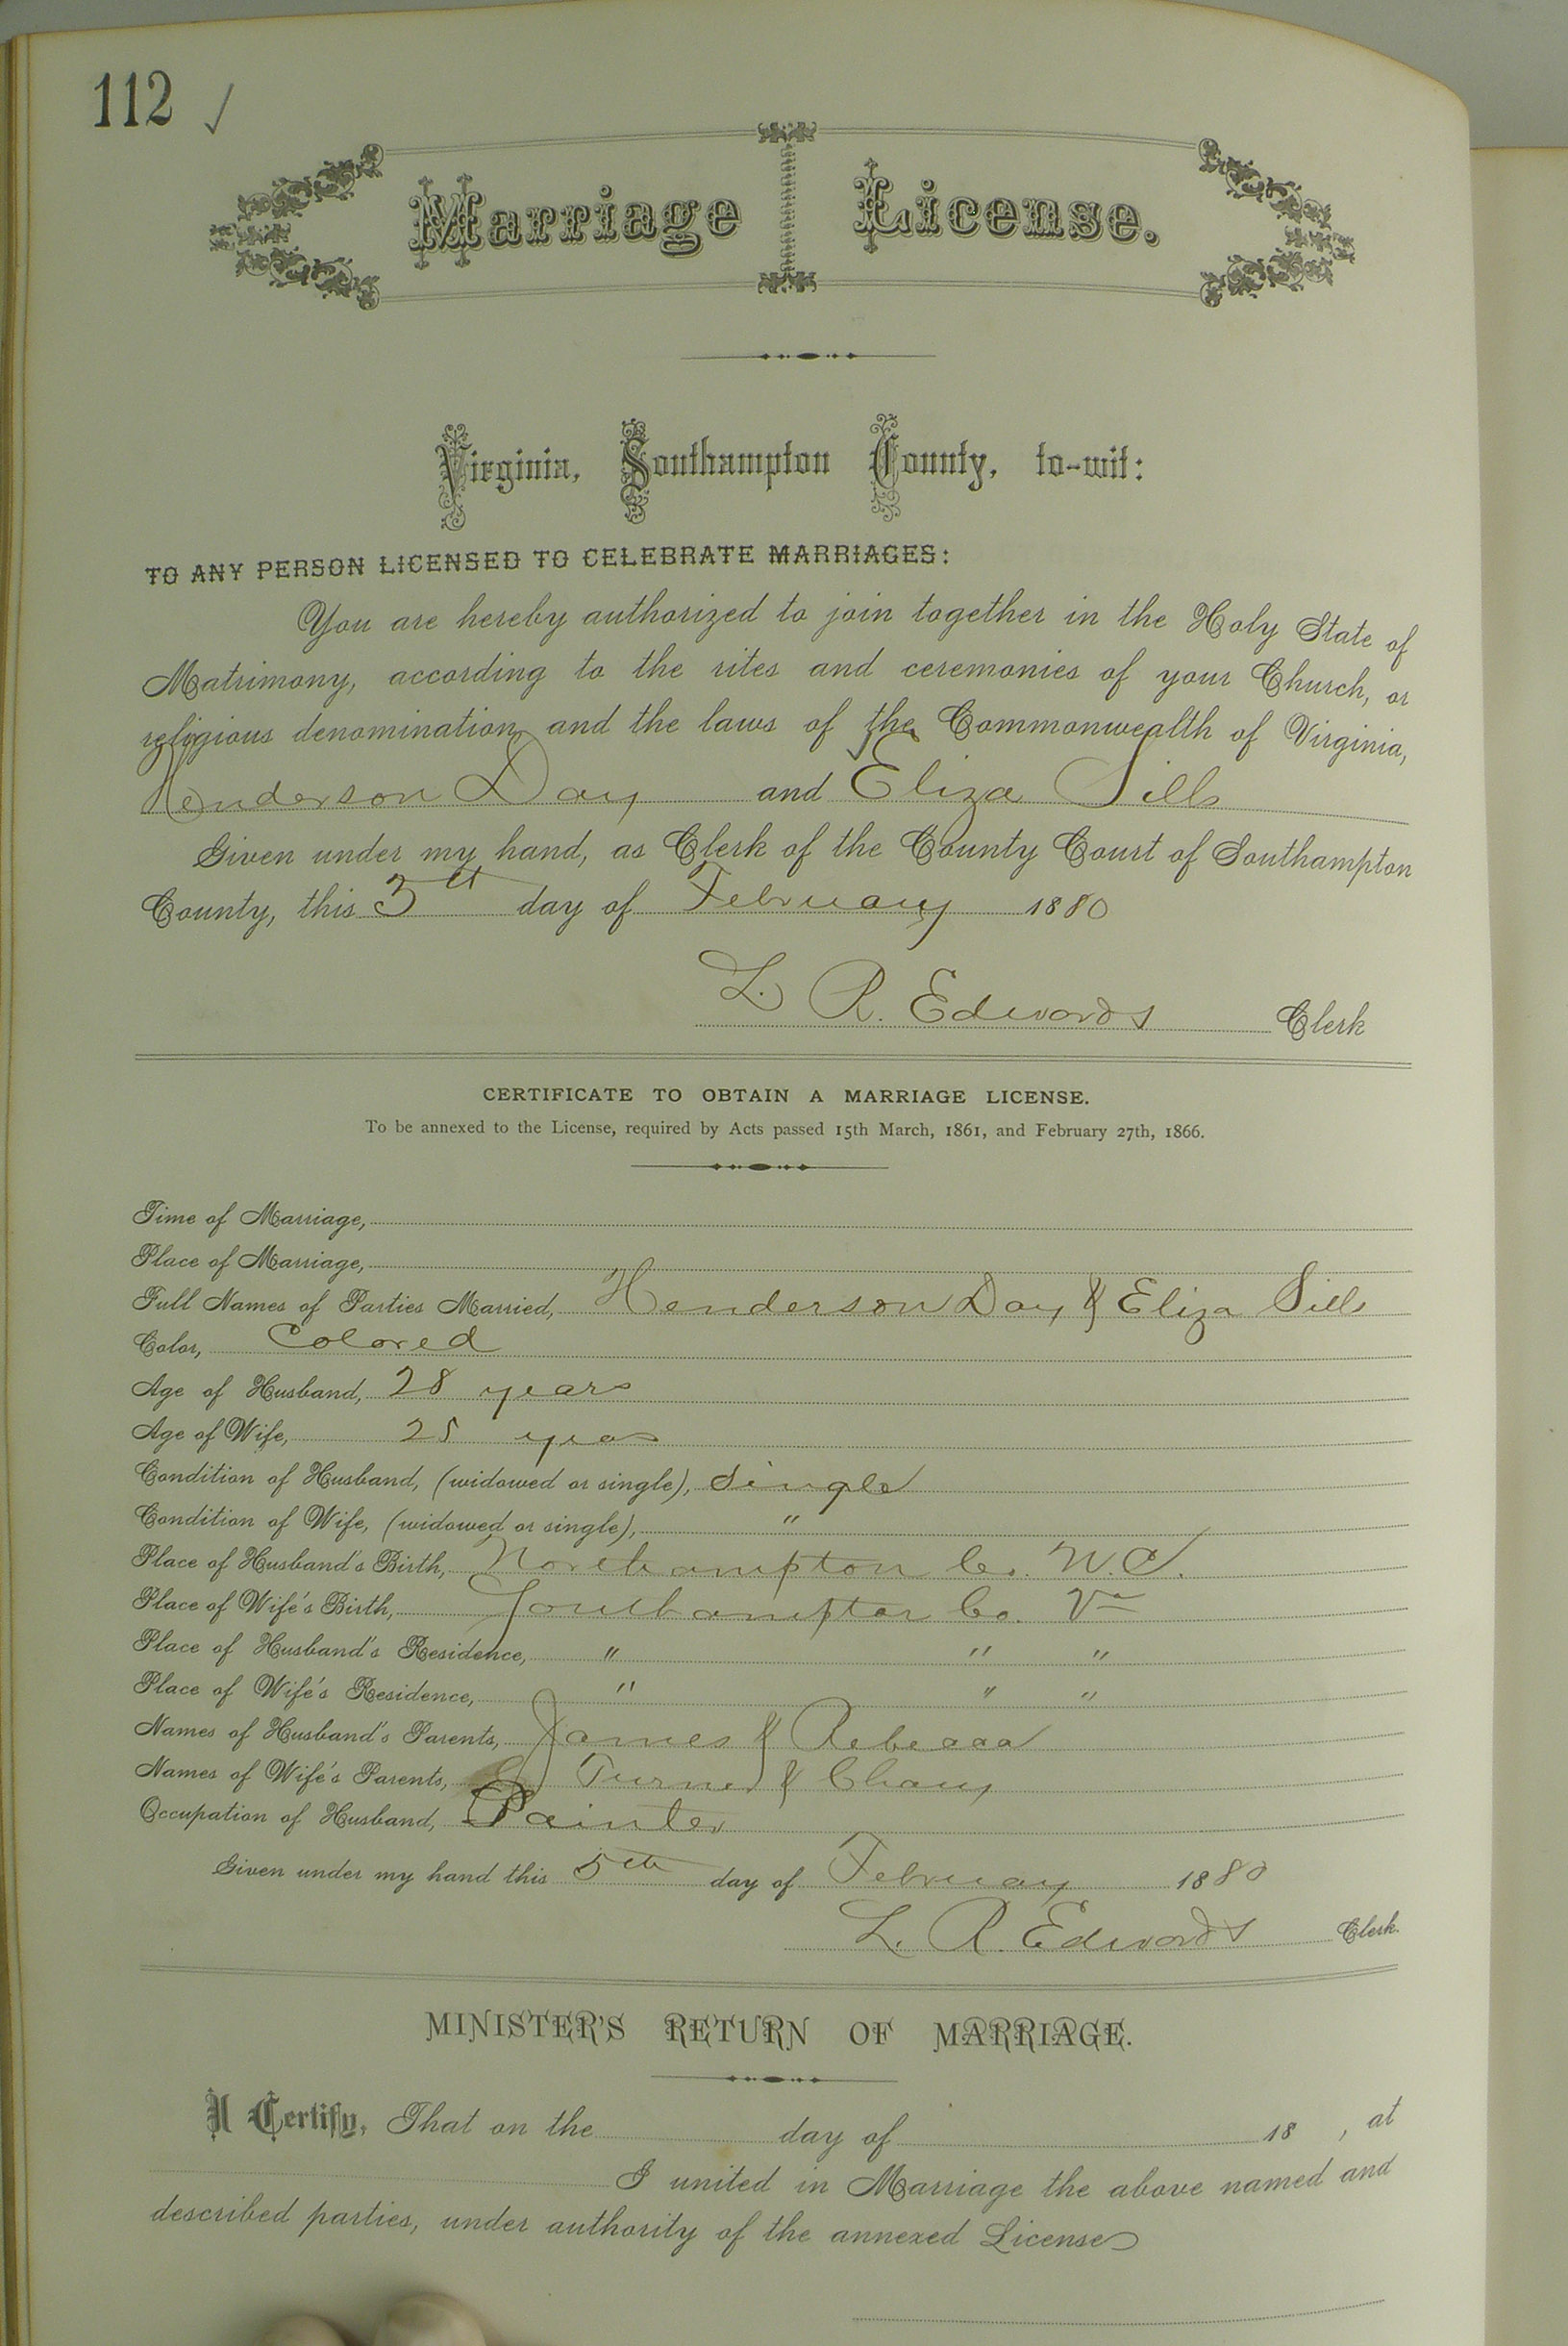 112 ✓
Marriage License.
Virginia, Southampton County, to-wit:
TO ANY PERSON LICENSED TO CELEBRATE MARRIAGES:
You are hereby authorized to join together in the Holy State of
Matrimony, according to the rites and ceremonies of your Church, or
religious denomination, and the laws of the Commonwealth of Virginia,
Henderson Day and Eliza Sills
Given under my hand, as Clerk of the County Court of Southampton
County, this 5th day of February 1880
L. R. Edwards Clerk
CERTIFICATE TO OBTAIN A MARRIAGE LICENSE.
To be annexed to the License, required by Acts passed 15th March, 1861, and February 27th, 1866.
Time of Marriage,
Place of Marriage,
Full Names of Parties Married, Henderson Day & Eliza Sills
Color, Colored
Age of Husband, 28 years
Age of Wife, 25 years
Condition of Husband, (widowed or single), Single
Condition of Wife, (widowed or single), "
Place of Husband's Birth, Northampton Co. N.C.
Place of Wife's Birth, Southampton Co. Va
Place of Husband's Residence, " " "
Place of Wife's Residence, " " "
Names of Husband's Parents, James & Rebecca
Names of Wife's Parents, Turner & Chany
Occupation of Husband, Painter
Given under my hand this 5th day of February 1880
L. R. Edwards Clerk.
MINISTER'S RETURN OF MARRIAGE.
I Certify, That on the day of 18 , at
I united in Marriage the above named and
described parties, under authority of the annexed License